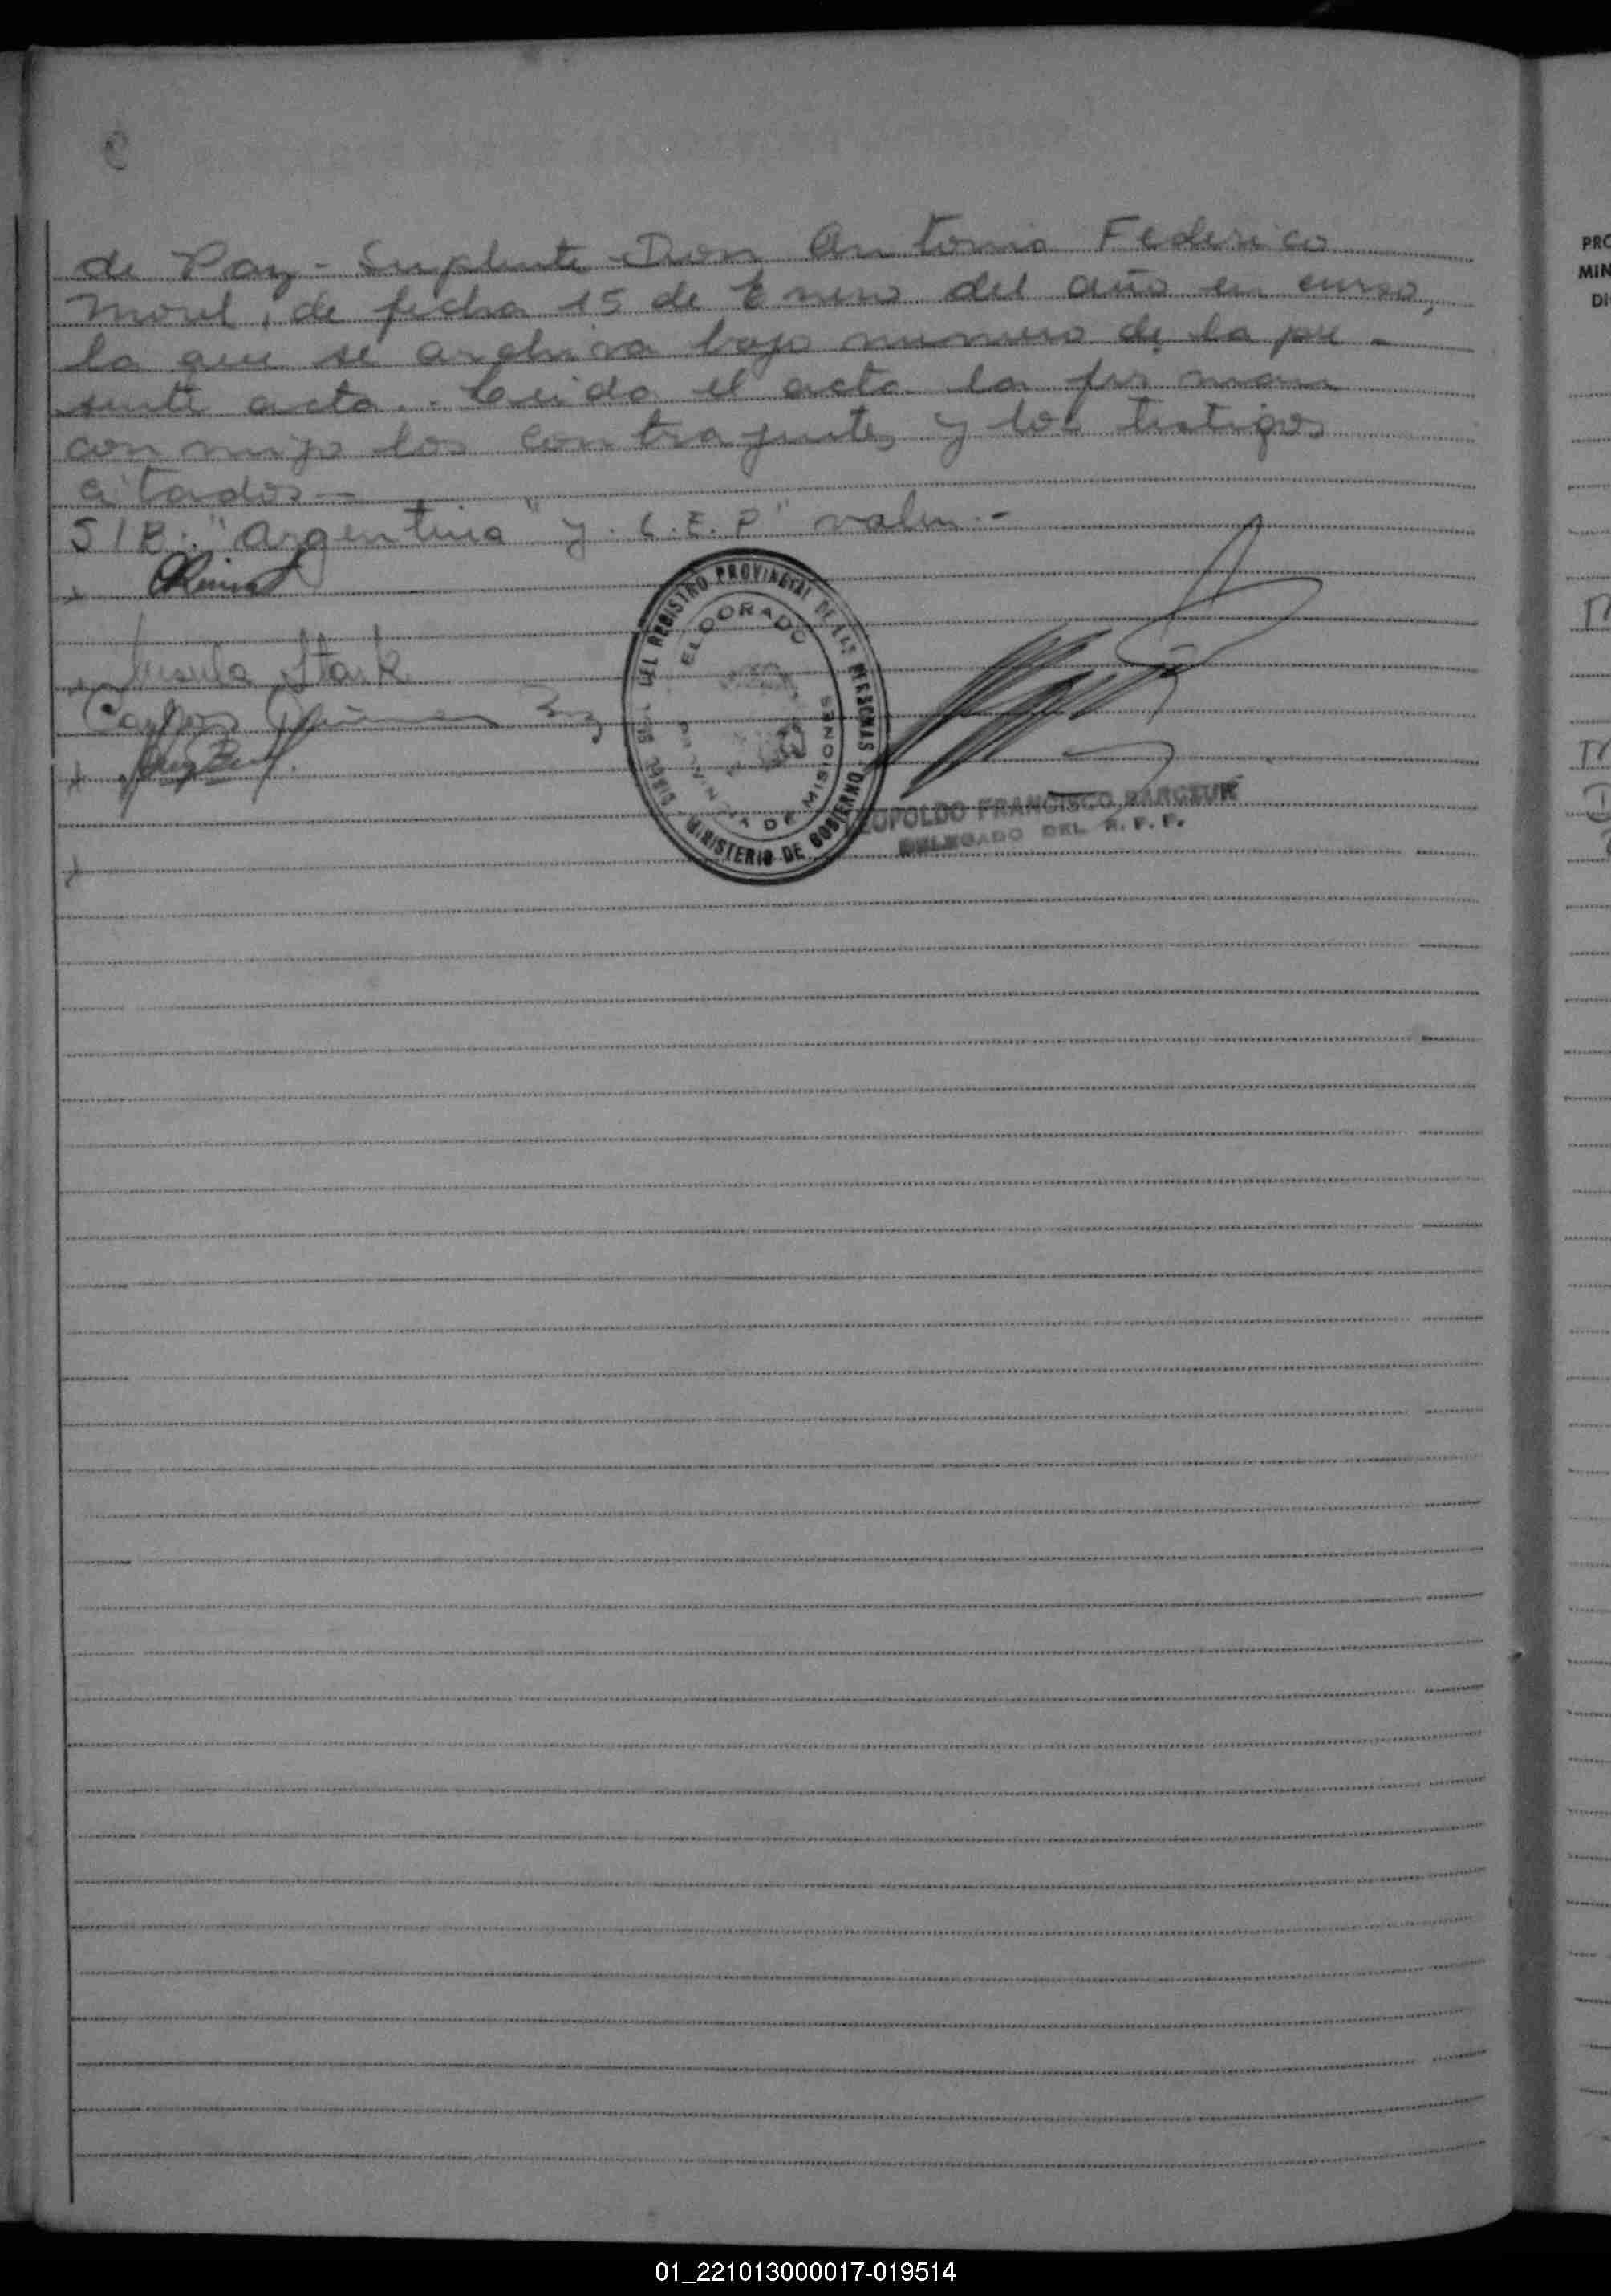 de Paz - Suplente Don Antonio Federico
Morel, de fecha 15 de Enero del año en curso,
la que se archiva bajo numero de la pre -
sente acta.. Leida el acta la firman
conmigo los contrayentes y los testigos
citados -
S/B: "Argentina" y "C.E.P" valen. -
Ursula Stark
Carlos
DEL REGISTRO PROVINCIAL DE LAS PERSONAS
MINISTERIO DE GOBIERNO
ELDORADO
PROVINCIA DE MISIONES
LEOPOLDO FRANCISCO BARCZUK
DELEGADO DEL R. P. P.
PRO
MIN
Di
01_221013000017-019514